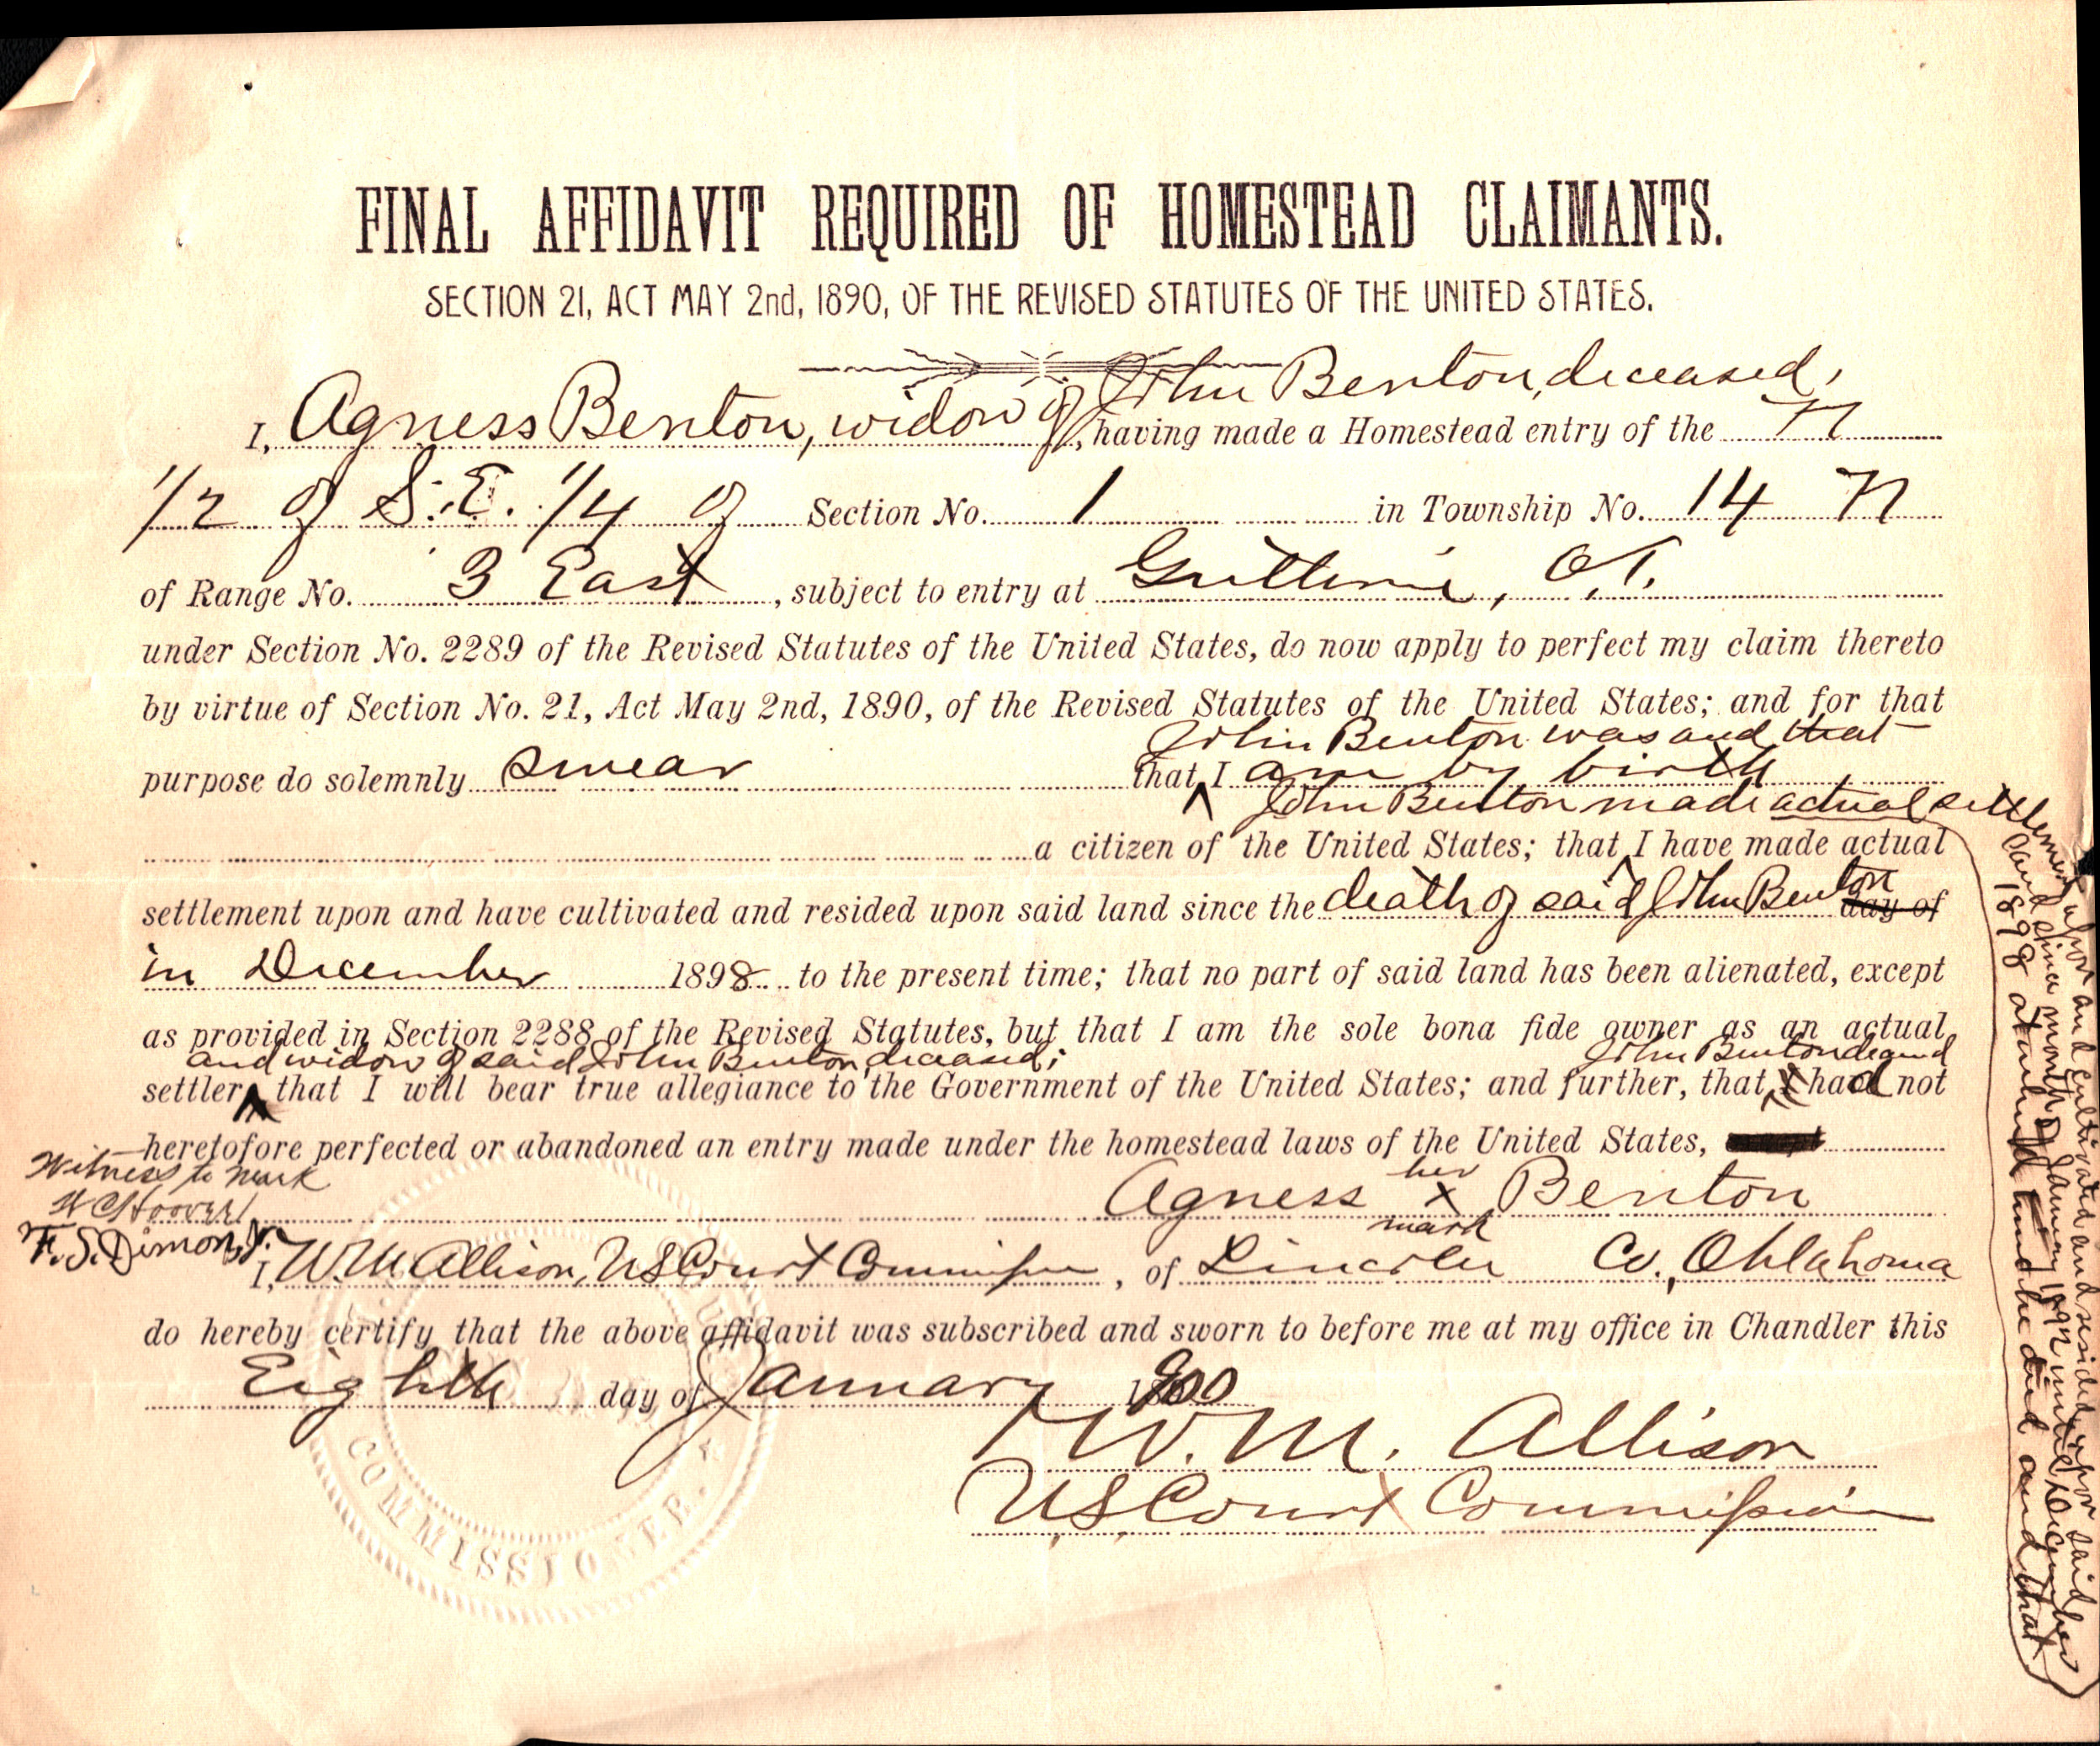 FINAL AFFIDAVIT REQUIRED OF HOMESTEAD CLAIMANTS.
SECTION 21, ACT MAY 2nd, 1890, OF THE REVISED STATUTES OF THE UNITED STATES.
John Benton, deceased,
I, Agness Benton, widow of, having made a Homestead entry of the N
1/2 of S.E. 1/4 of Section No. 1 in Township No. 14 N
of Range No. 3 East, subject to entry at Guthrie, O.T.
under Section No. 2289 of the Revised Statutes of the United States, do now apply to perfect my claim thereto
by virtue of Section No. 21, Act May 2nd, 1890, of the Revised Statutes of the United States; and for that
John Benton was and that
purpose do solemnly swear that I am by birth
John Benton made actual settlement upon and cultivated and resided upon said
land since month of January 1892 until December
1898 at which time he died and that
a citizen of the United States; that I have made actual
settlement upon and have cultivated and resided upon said land since the death of said John Benton day of
in December 1898 to the present time; that no part of said land has been alienated, except
as provided in Section 2288 of the Revised Statutes, but that I am the sole bona fide owner as an actual
and widow of said John Benton, deceased; John Benton
settler that I will bear true allegiance to the Government of the United States; and further, that I had not
heretofore perfected or abandoned an entry made under the homestead laws of the United States,
Witness to mark
W C Hoover
F. S. Dimon, Jr.
her
Agness x Benton
mark
I, W.M Allison, US Court Commissioner, of Lincoln Co., Oklahoma
do hereby certify that the above affidavit was subscribed and sworn to before me at my office in Chandler this
Eighth day of January 1900
W. M. Allison
U.S. Court Commissioner
COMMISSIONER.